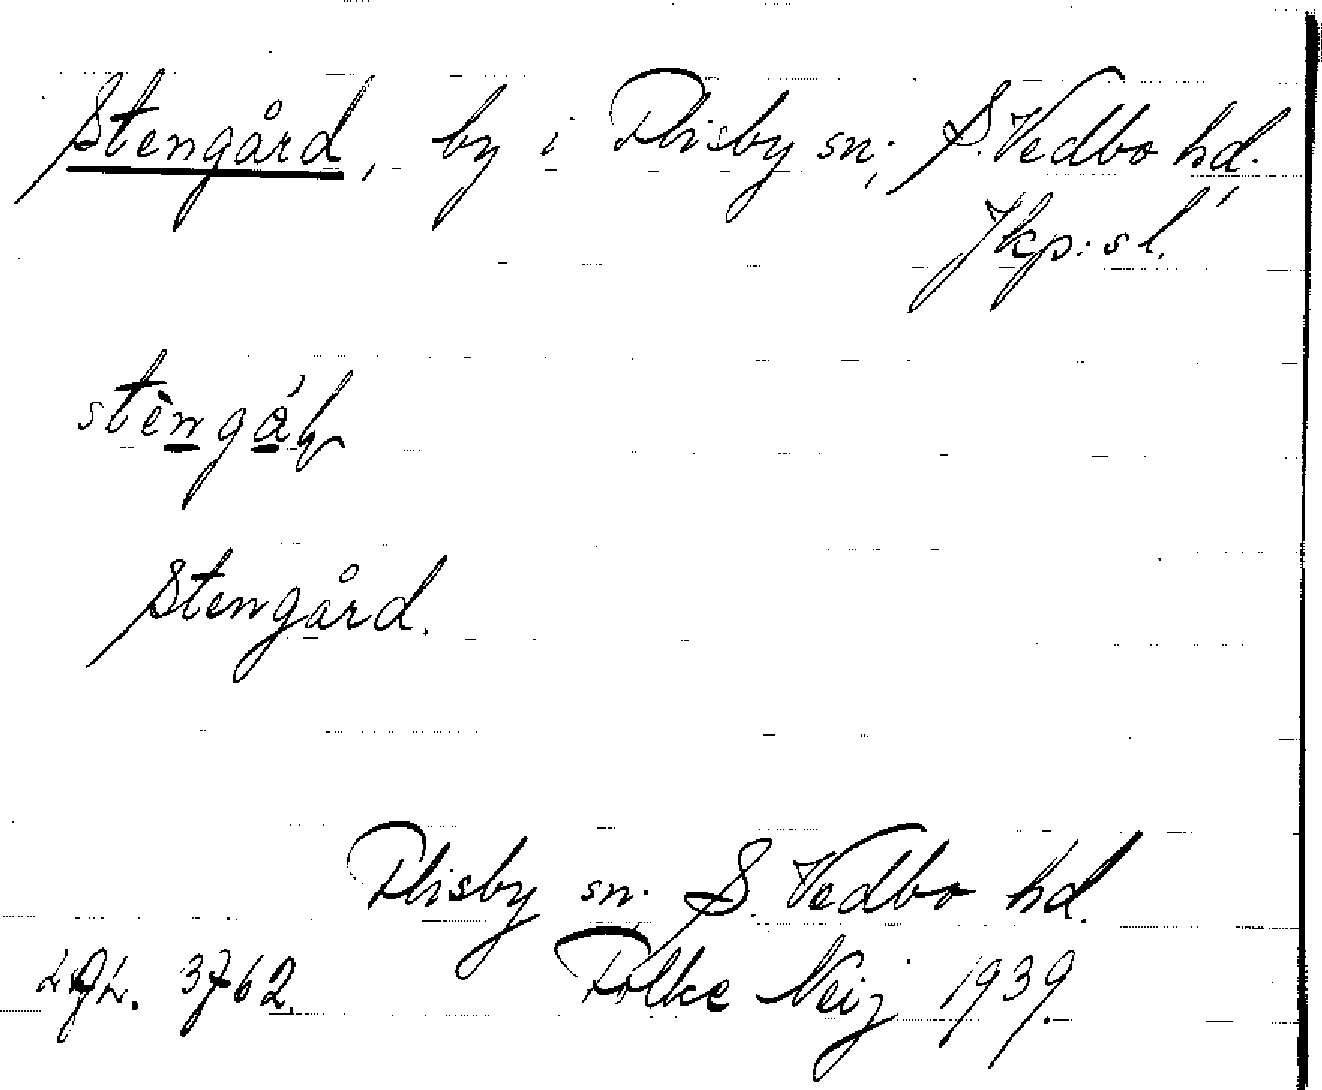 Stengård, by i Flisby sn; S. Vedbo hd.
Jkp:s l.
stèngá
Stengård.
Flisby sn. S. Vedbo hd.
3762. Folke Neij 1939.